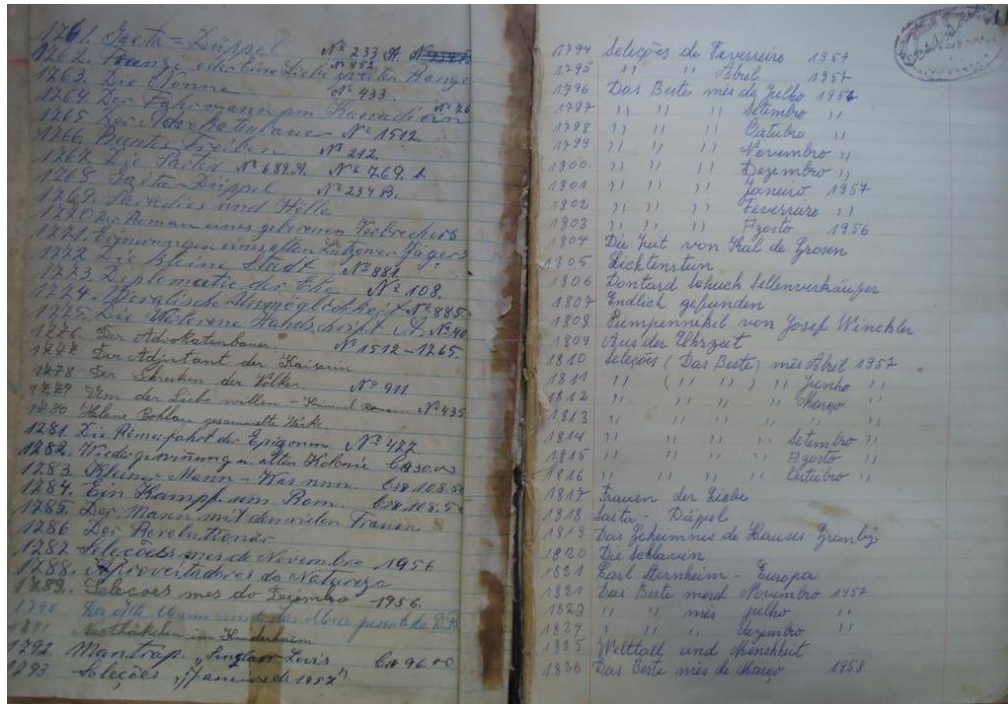 1261. Gaeta = Düppel Nº 233 A.
1262. Franzi oder Eine Liebe zweiten Ranges Nº 852
1263. Die Nonne Nº 433.
1264. Der Fährmann am Kanadiern Nº 26
1265. Der Advokatenbauer Nº 1512.
1266. Buntes Treiben Nº 212.
1267. Die Saiten Nº 689.A. Nº 769. b
1268 Gaita-Düppel Nº 234 B.
1269. Paradies und Hölle
1270 Der Roman eines geborenen Verbrechers
1271. eines alten Lützower Jägers
1272. Die Kleine Stadt Nº 881.
1273. Diplomatie der Ehe Nº 108.
1274. Moralische Unmöglichkeit Nº 885
1275. Die Verlorene Handschrift A. Nº 40
1276. Der Advokatenbauer. Nº 1512-1265.
1277 Der Adjutant der Kaiserin
1278 Der Schrecken der Völker. Nº 911.
1279 Um der Liebe willen - Kriminal Roman Nº 435
1280 Helene Bohlau gesammelte Werke.
1281. Die der Epigonen Nº 427.
1282. Wiedergewinung u. alten Kolonie Cr$ 30.00
1283. Kleiner Mann - Was nun Cr$ 108.50
1284. Ein Kampf um Rom. Cr$ 108.50
1285. Der Mann mit den vielen Frauen 8
1286 Der Revolutionär
1287 Seleções mes de Novembro 1956
1288. Aproveitadores da Natureza
1289. Selecoes mes do Dezembro 1956.
1290 Der alte Mann und das Meer
1291 Nesthäkchen im Kinderheim
1292. Mantrap. "Singlair Levis Cr$ 96.00
1293. Seleções "Janeiro de 1957"
1794 Seleções de Fevereiro 1957
1795 " " Abril 1957
1796 Das Beste mês de Julho 1956
1797 " " " Setembro "
1798 " " " Outubro "
1799 " " " Novembro "
1800 " " " Dezembro "
1801 " " " Janeiro 1957
1802 " " " Fevereiro "
1803 " " " Agosto 1956
1804 Die Zeit von Kral de Grosen
1805 Lichtenstein
1806 Schuch
1807 Endlich gefunden
1808 Pumpennikel von Josef Winckler
1809 Aus der Uhrzeit
1810 Seleções (Das Beste) mês Abril 1957
1811 " ( " " ) " Junho "
1812 " " " " Março "
1813 " " " " " "
1814 " " " " Setembro "
1815 " " " " Agosto "
1816 " " " " Outubro "
1817 Frauen der Liebe
1818 Gaita - Düppel
1819 Das Geheimnis de Hauses
1820 Die Sklavin
1821 Karl Sternheim - Europa
1821 Das Beste Novembro 1957
1823 " " mês julho "
1824 " " " Dezembro "
1825 Welttall und Menshheit
1826 Das Beste mês de Março 1958